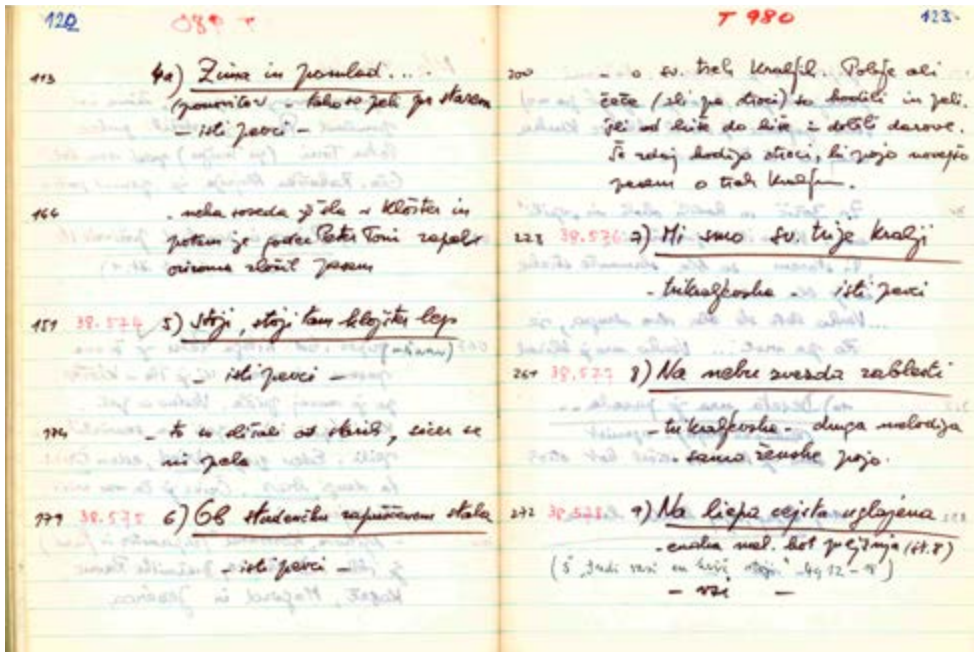 122
113 4a) Zima in pomlad...
(ponovitev - tako so peli po starem
- isti pevci -
166 - neka soseda je šla v Klošter in
potem je Peter Toni zapel
oziroma zložil pesem
151 38.574 5) Stoji, stoji tam klošter lep
- isti pevci -
174 - to so slišali od starih, sicer se
ni pela
179 38.575 6) Ob studencu zapuščenem stala
- isti pevci -
T 980 123
200 - o sv. treh Kraljih. Poblje ali
čeče (ali pa otroci) so hodili in peli.
Šli od hiše do hiše i dobili darove.
Še zdaj hodijo otroci, ki pojo novejšo
pesem o treh kraljih.
228 38.576 7) Mi smo sv. trije kralji
- trikraljevska - isti pevci
261 38.577 8) Na nebu zvezda zablesti
- trikraljevska - druga melodija
- samo ženske pojo.
272 38.578 9) Na liepa cejsta uglajena
- enaka mel. kot prejšnja (št. 8)
- vsi -